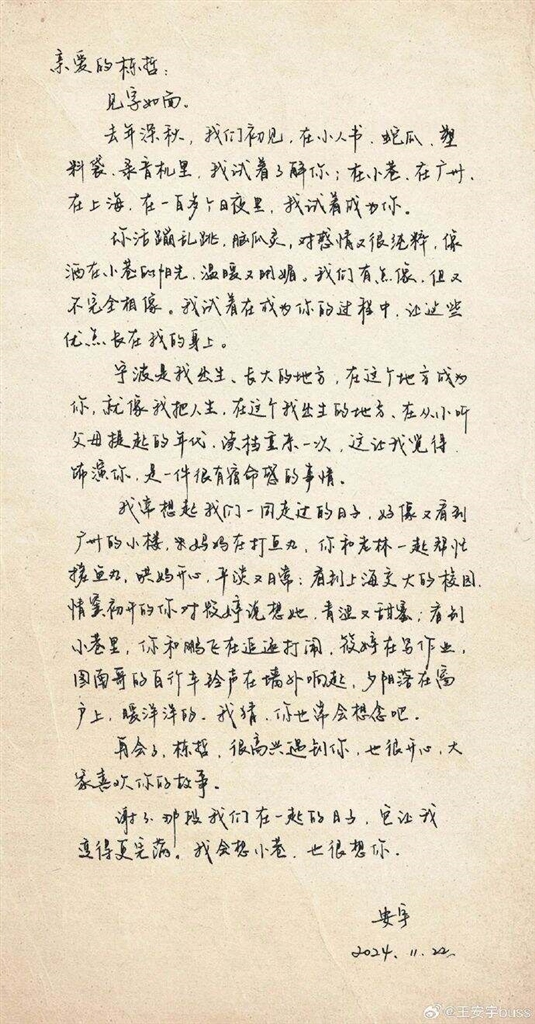 亲爱的栋哲：
见字如面。
去年深秋，我们初见，在小人书、蛇瓜、塑
料袋、录音机里，我试着了解你；在小巷、在广州、
在上海、在一百多个日夜里，我试着成为你。
你活蹦乱跳，脑瓜灵，对感情又很纯粹，像
洒在小巷的阳光，温暖又明媚。我们有点像，但又
不完全相像。我试着在成为你的过程中，让这些
优点长在我的身上。
宁波是我出生、长大的地方，在这个地方成为
你，就像我把人生，在这个我出生的地方、在从小听
父母提起的年代，读档重来一次，这让我觉得，
饰演你，是一件很有宿命感的事情。
我常想起我们一同走过的日子，好像又看到
广州的小楼，宋妈妈在打鱼丸，你和老林一起帮忙
搓鱼丸，哄妈开心，平淡又日常；看到上海交大的校园，
情窦初开的你对筱婷说想她，青涩又甜蜜；看到
小巷里，你和鹏飞在追逐打闹，筱婷在写作业，
图南哥的自行车铃声在墙外响起，夕阳落在窗
户上，暖洋洋的。我猜，你也常会想念吧。
再会了，栋哲，很高兴遇到你，也很开心，大
家喜欢你的故事。
谢谢那段我们在一起的日子，它让我
变得更完满。我会想小巷，也很想你。
安宇
2024.11.22
@王安宇buss